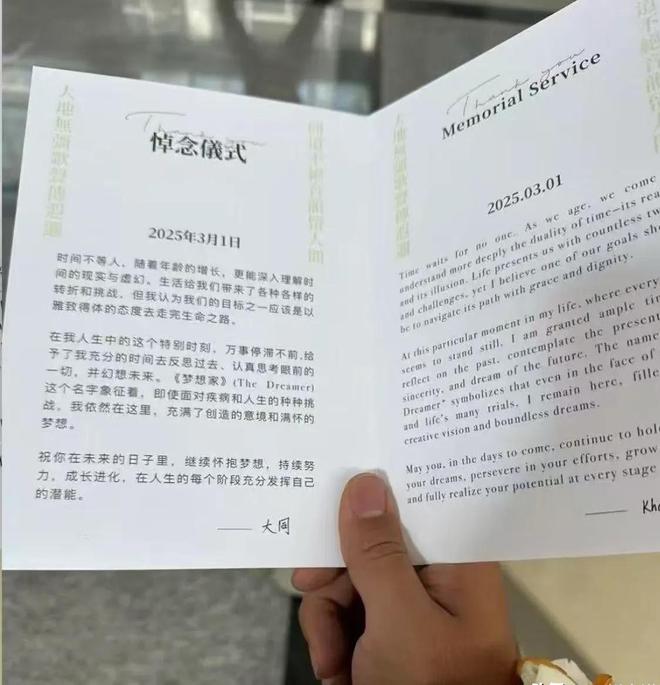 大地無疆歌聲傳遐邇
Thank you
悼念儀式
2025年3月1日
时间不等人，随着年龄的增长，更能深入理解时
间的现实与虚幻。生活给我们带来了各种各样的
转折和挑战，但我认为我们的目标之一应该是以
雅致得体的态度去走完生命之路。
在我人生中的这个特别时刻，万事停滞不前,给
予了我充分的时间去反思过去、认真思考眼前的
一切，并幻想未来。《梦想家》(The Dreamer)
这个名字象征着，即使面对疾病和人生的种种挑
战，我依然在这里，充满了创造的意境和满怀的
梦想。
祝你在未来的日子里，继续怀抱梦想，持续努
力，成长进化，在人生的每个阶段充分发挥自己
的潜能。
—— 大同
大地無疆歌聲傳遐邇
Thank you
Memorial Service
2025.03.01
Time waits for no one. As we age, we come
understand more deeply the duality of time—its rea
and its illusion. Life presents us with countless tw
and challenges, yet I believe one of our goals sho
be to navigate its path with grace and dignity.
At this particular moment in my life, where every
seems to stand still, I am granted ample tim
reflect on the past, contemplate the present
sincerity, and dream of the future. The name
Dreamer" symbolizes that even in the face of
and life's many trials, I remain here, fille
creative vision and boundless dreams.
May you, in the days to come, continue to hol
your dreams, persevere in your efforts, grow
and fully realize your potential at every stage
—— Kha